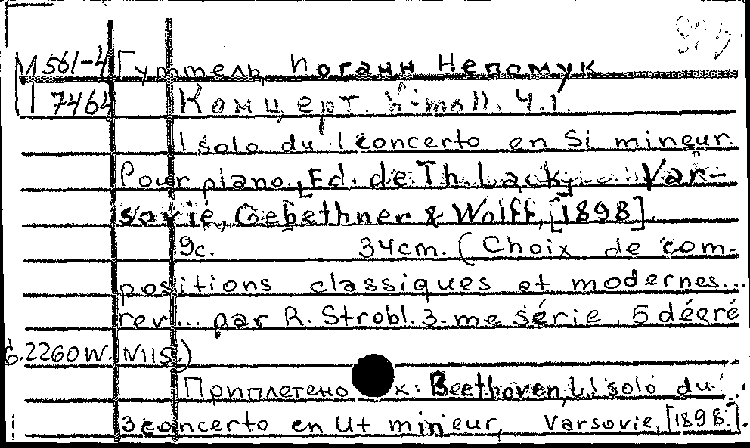 М 561-4 Гуммель, Иоганн Непомук
7464 Концерт. h-moll. Ч.1.
1 solo du 1 concerto en Si mineur.
Pour piano, Ed. de Th. Lack. Var-
sovie, Gebethner & Wolff, [1898].
9с. 34cm. (Choix de com-
positions classiques et modernes...
rev... par R. Strobl. 3-me série, 5 dégré
2260W. N11S.)
Приплетено к: Beethoven, L. 1 solo du
3 concerto en Ut mineur, Varsovie, [1898.]